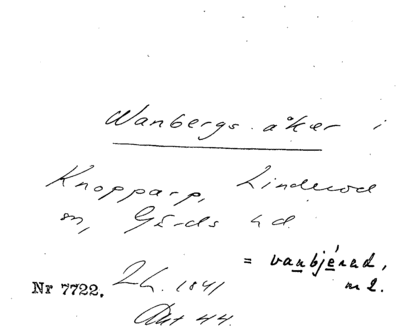 Wanbergs åker i
Knopparp, Linderöd
sn, Gärds hd.
= vanbjérad,
m 2.
Nr 7722. 2h. 1841
Akt 44.